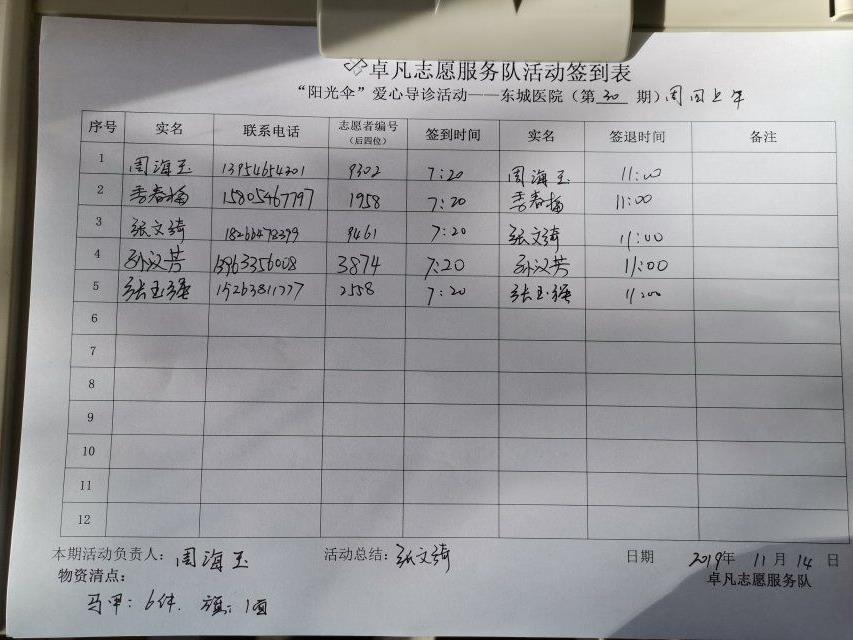 卓凡志愿服务队活动签到表
“阳光伞”爱心导诊活动——东城医院（第 30 期）周四上午
序号 实名 联系电话 志愿者编号（后四位） 签到时间 实名 签退时间 备注
1 周海玉 13954654201 9302 7:20 周海玉 11:00
2 季春梅 15805467797 1958 7:20 季春梅 11:00
3 张文绮 18266478399 9461 7:20 张文绮 11:00
4 孙汉芳 13963356008 3874 7:20 孙汉芳 11:00
5 张玉强 15263811777 2558 7:20 张玉强 11:00
6
7
8
9
10
11
12
本期活动负责人：周海玉 活动总结：张文绮 日期 2019年 11月 14日
物资清点： 卓凡志愿服务队
马甲：6件. 旗：1面